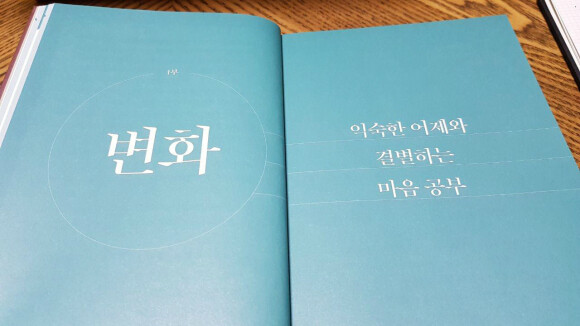 1부
변화
익숙한 어제와
결별하는
마음 공부